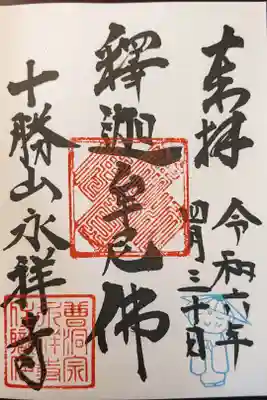 奉拝
令和六年
四月三十日
釋迦牟尼佛
十勝山永祥寺
曹洞宗
永祥寺